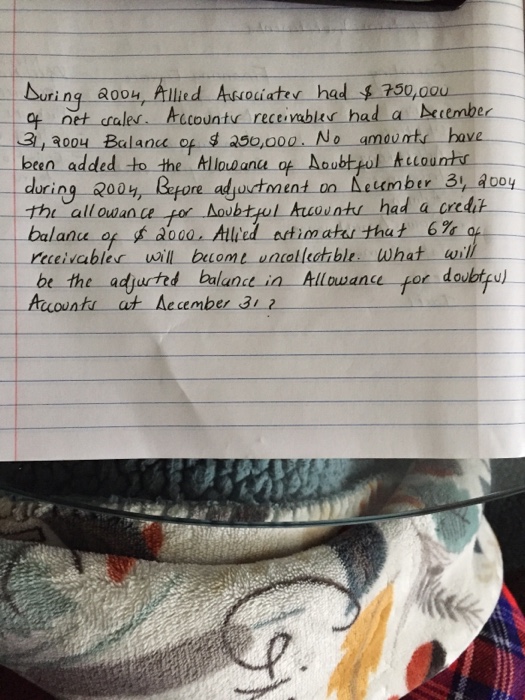 During 2004, Allied Associates had $ 750,000
of net sales. Accounts receivables had a December
31, 2004 Balance of $ 250,000. No amounts have
been added to the Allowance of Doubtful Accounts
during 2004, Before adjustment on December 31, 2004
the allowance for Doubtful Accounts had a credit
balance of $ 2000. Allied estimates that 6% of
receivables will become uncollectible. What will
be the adjusted balance in Allowance for doubtful
Accounts at December 31?